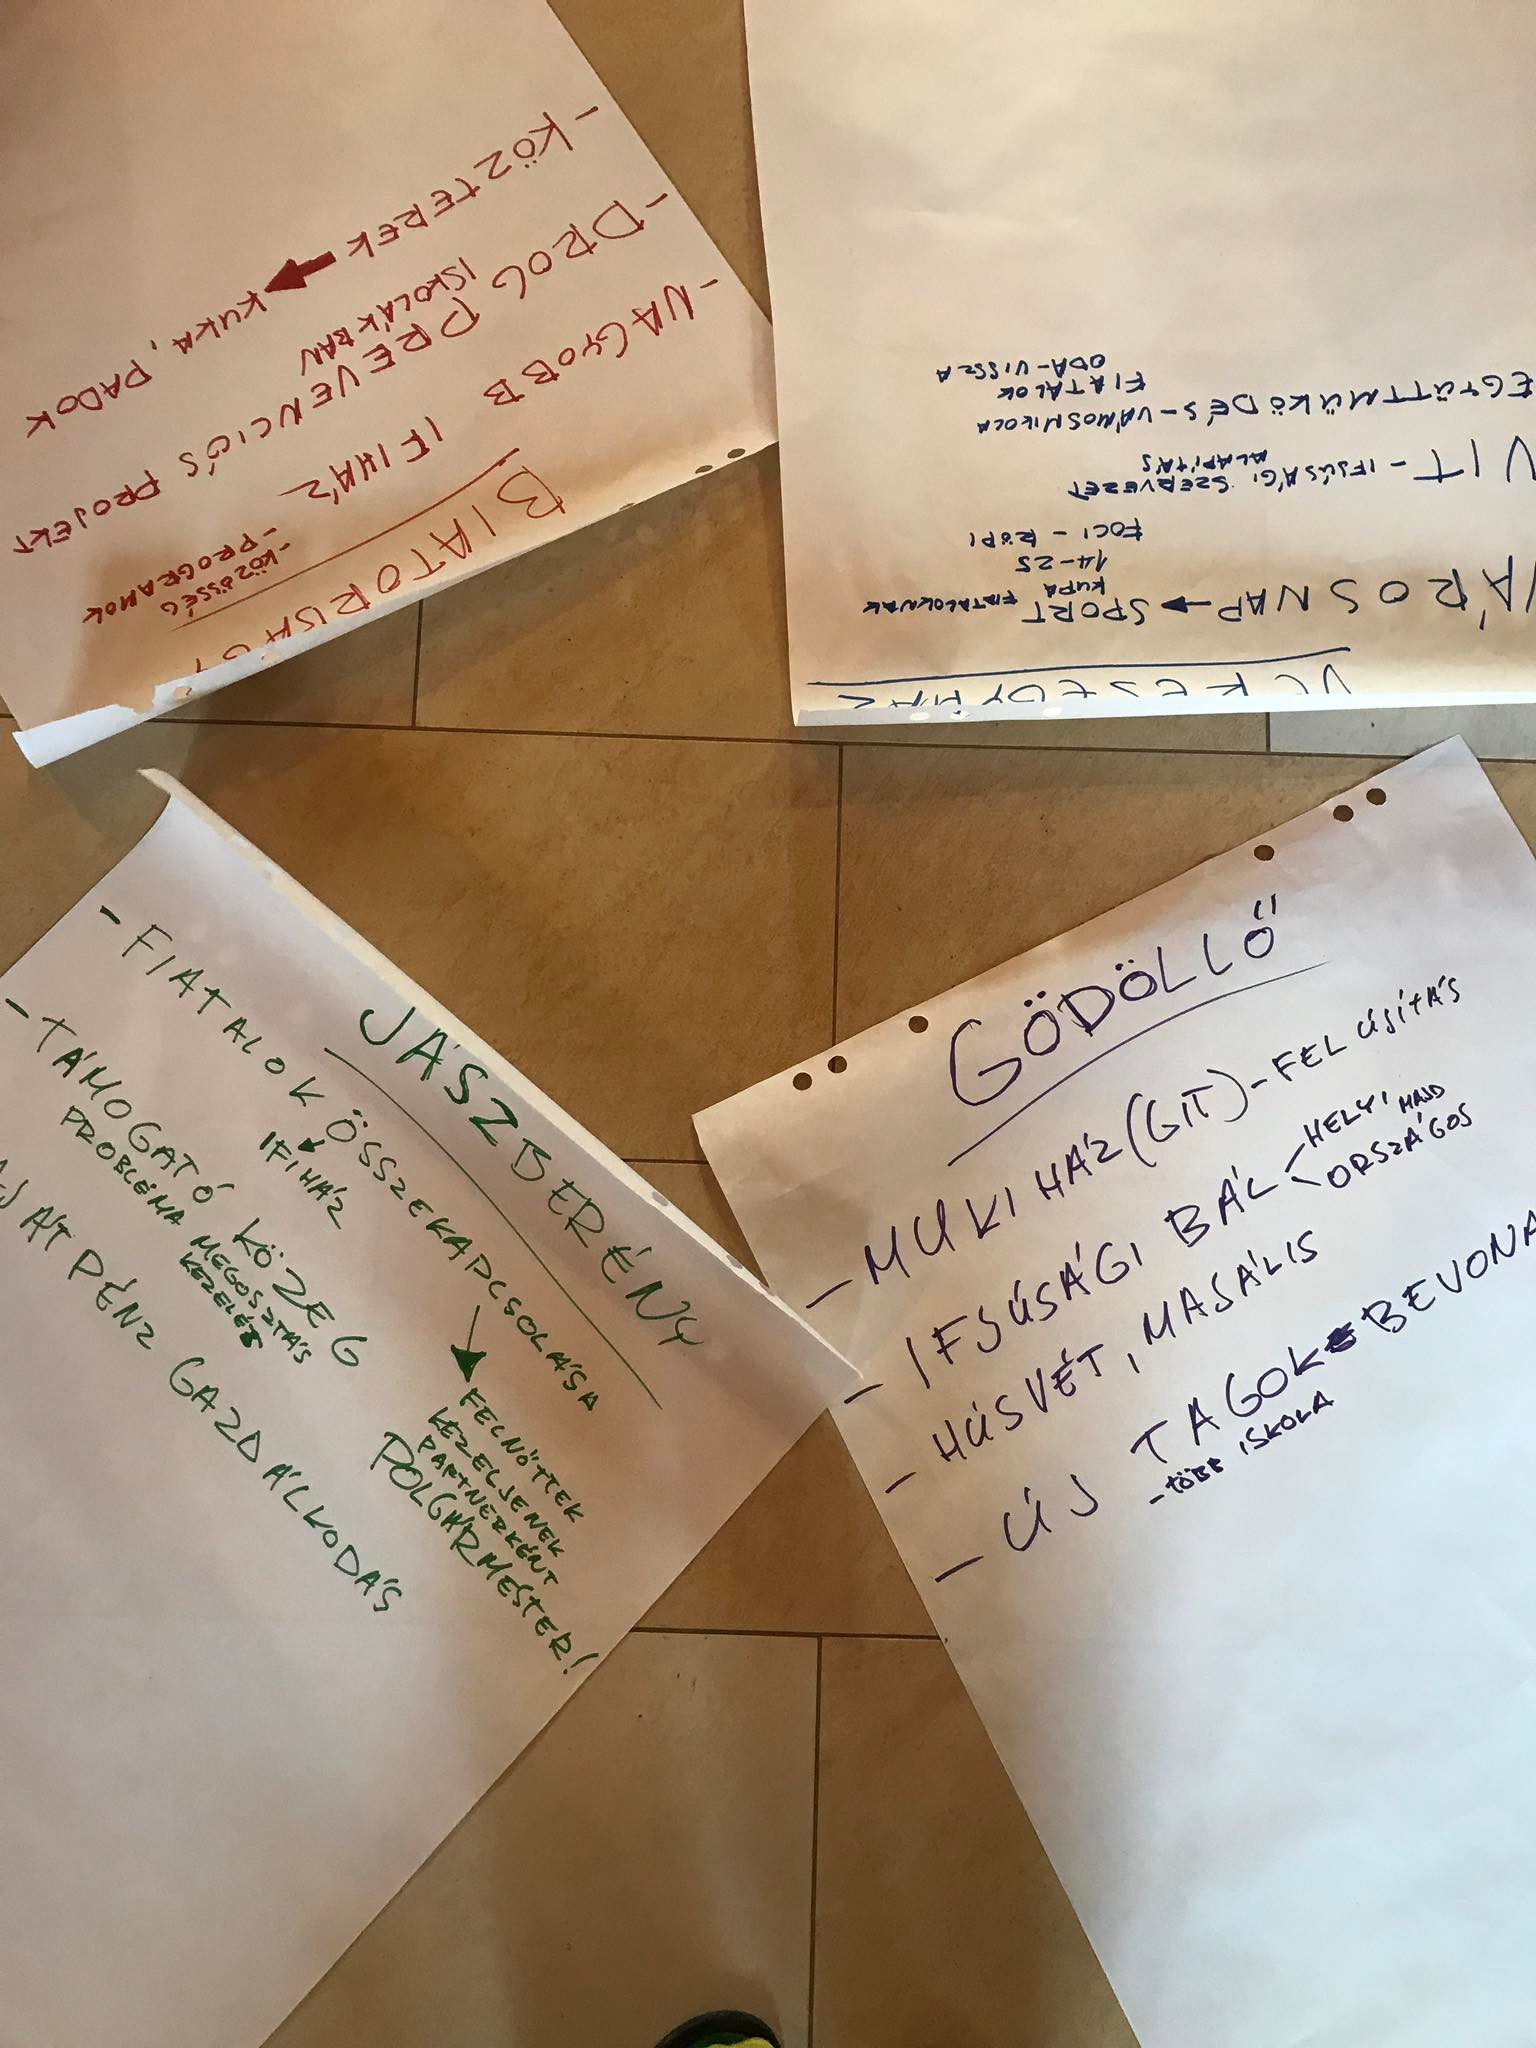 BIATORBÁGY
- NAGYOBB IFIHÁZ
- KÖZÖSSÉG
- PROGRAMOK
- DROG PREVENCIÓS PROJEKT
ISKOLÁKBAN
- KÖZTEREK → KUKA, PADOK
SPORT FIATALOKNAK
KUPA
14-25
FOCI - RÖPI
VIT - IFJÚSÁGI SZERVEZET
ALAPÍTÁS
EGYÜTTMŰKÖDÉS - VÁMOSMIKOLA
FIATALOK
ODA-VISSZA
JÁSZBERÉNY
- FIATALOK ÖSSZEKAPCSOLÁSA
IFIHÁZ
FELNŐTTEK
KEZELJENEK
PARTNERKÉNT
POLGÁRMESTER!
- TÁMOGATÓ KÖZEG
PROBLÉMA MEGOSZTÁS
KEZELÉS
PÉNZ GAZDÁLKODÁS
GÖDÖLLŐ
- MUKI HÁZ (GIT) - FELÚJÍTÁS
- IFJÚSÁGI BÁL
HELYI MAJD
ORSZÁGOS
- HÚSVÉT, MASÁLIS
- ÚJ TAGOK BEVONÁ
- TÖBB ISKOLA